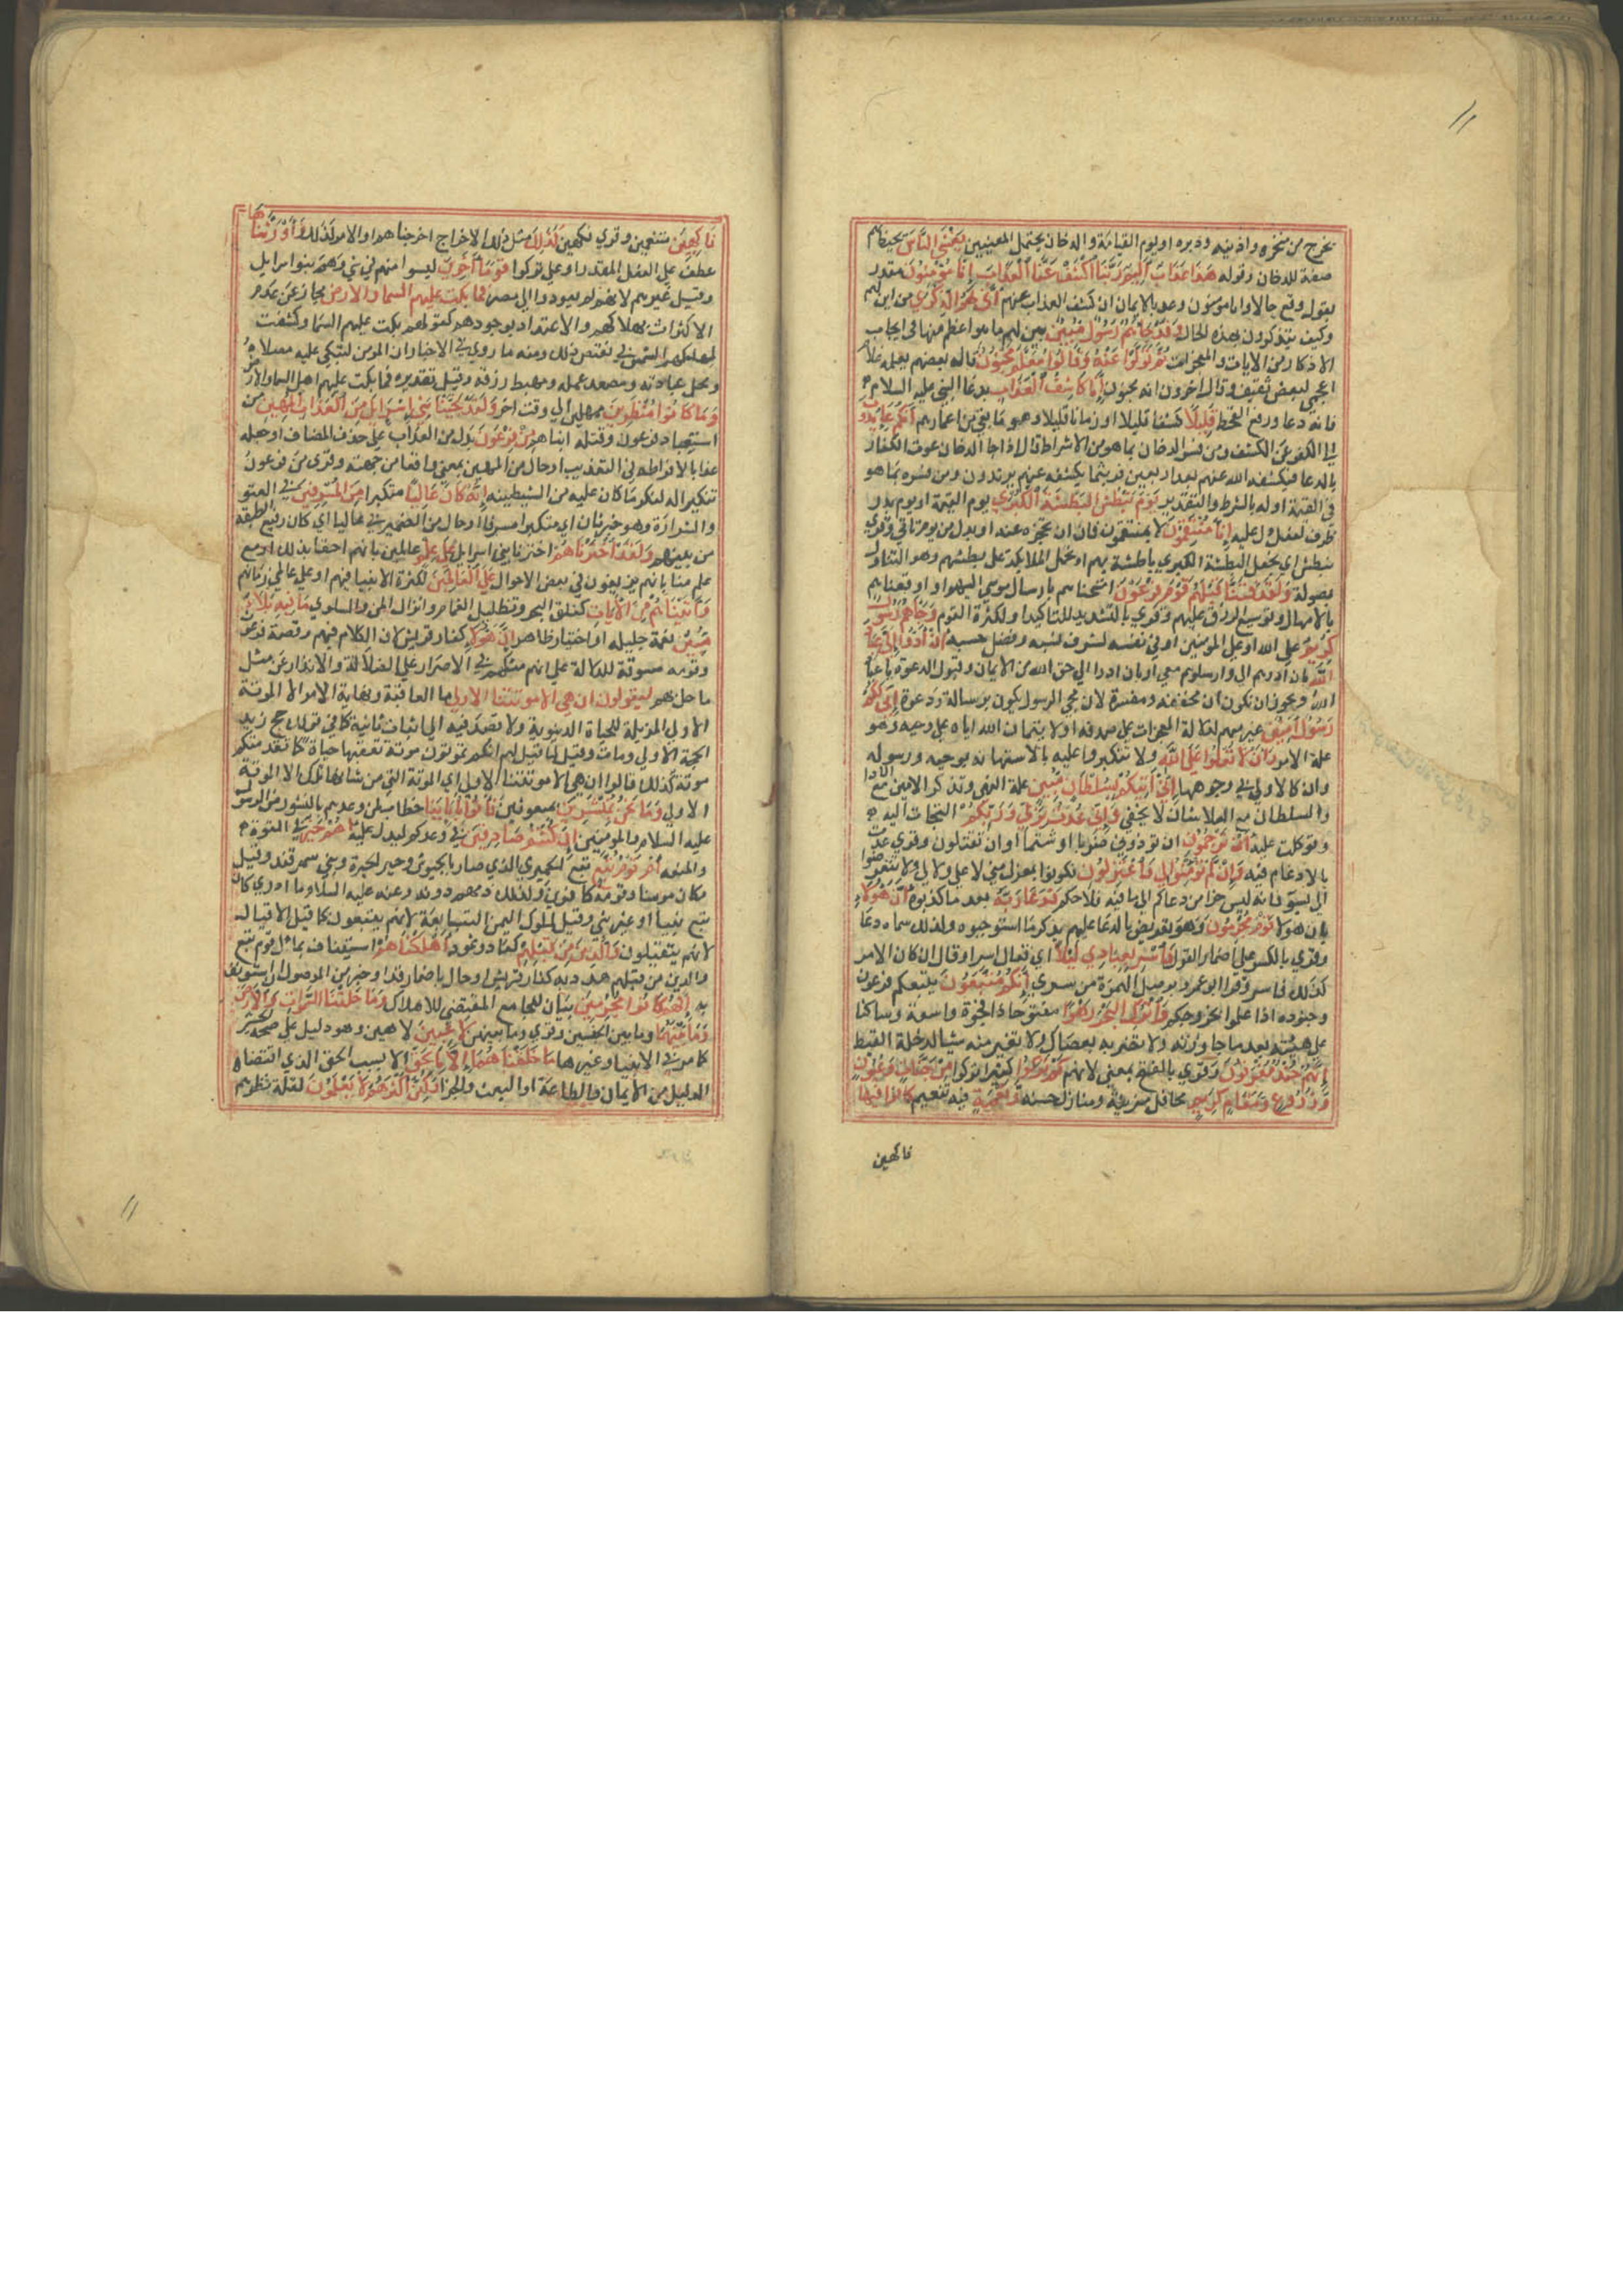 ١١
يخرج من منخره واذنيه ودبره او يوم القيامة والدخان يحتمل المعنيين يغشى الناس يحيط بهم
صفة للدخان وقوله هذا عذاب اليم ربنا اكشف عنا العذاب انا مؤمنون مقدر
بقول وقع حالا وانا مومنون وعد بالايمان ان كشف العذاب عنهم اني لهم الذكري من اين لهم
وكيف يتذكرون بهذه الحال وقد جاهم رسول مبين بين لهم ما هو اعظم منها في ايجاب
الاذكار من الايات والمعجزات ثم تولوا عنه وقالوا معلم مجنون قال بعضهم يعلمه غلام
اعجمي لبعض ثقيف وقال اخرون انه مجنون انا كاشفوا العذاب بدعا النبي عليه السلام
فانه دعا ورفع القحط قليلا كشفا قليلا او زمانا قليلا وهو ما بقي من اعمارهم انكم عايدون
الي الكفر غب الكشف ومن فسر الدخان بما هو من الاشراط قال اذا جا الدخان غوث الكفار
بالدعا فيكشفه الله عنهم بعد اربعين فريثما يكشفه عنهم يرتدون ومن فسره بما هو
في القيمة اوله بالشرط والتقدير يوم نبطش البطشة الكبري يوم القيمة او يوم بدر
ظرف لفعل دل عليه انا منتقمون لا لمنتقمون فان ان يحجزه عنه او بدل من يوم تاتي وقري
نبطش اي نجعل البطشة الكبري باطشة بهم او نحمل الملايكة على بطشهم وهو التناول
بصولة ولقد فتنا قبلهم قوم فرعون امتحناهم بارسال موسي اليهم او اوقعناهم
بالامهال وتوسيع الرزق عليهم وقري بالتشديد للتاكيد او لكثرة القوم وجاهم رسول
كريم علي الله او علي المومنين او في نفسه لشرف نسبه وفضل حسبه ان ادوا الي عباد
الله بان ادوهم الي وارسلوهم معي او بان ادوا الي حق الله من الايمان وقبول الدعوة يا عباد
الله ويجوز ان تكون ان مخففة ومفسرة لان مجي الرسول يكون برسالة ودعوة اني لكم
رسول امين غير متهم لدلالة المعجزات على صدقه او لايتمان الله اياه على وحيه وهو
علة الامر وان لا تعلوا على الله ولا تتكبروا عليه بالاستهانة بوحيه ورسوله
وان كالاولي في وجوهها اني اتيكم بسلطان مبين علة النهي وتذكر الامين مع الادا
والسلطان مع العلا شان لا يخفي واني عذت بربي وربكم التجات اليه
وتوكلت عليه ان ترجمون ان توذوني ضربا او شتما او ان تقتلون وقري عدت
بالادغام فيه وان لم تؤمنوا لي فاعتزلون فكونوا بمعزل مني لا علي ولا لي ولا تتعرضوا
الي بسوء فانه ليس جزا من دعاكم الي ما فيه فلاحكم فدعا ربه بعد ما كذبوه ان هولاء
بان هولا قوم مجرمون وهو تعريض بالدعا عليهم بذكر ما استوجبوه ولذلك سماه دعا
وقري بالكسر على اضمار القول فاسر بعبادي ليلا اي فقال اسر او قال ان كان الامر
كذلك فاسر وقرا ابو عمرو بوصل الهمزة من سري انكم متبعون يتبعكم فرعون
وجنوده اذا علموا بخروجكم واترك البحر رهوا مفتوحا ذا فجوة واسعة وساكنا
على هيئته بعد ما جاوزته ولا تضربه بعصاك ولا تغير منه شيا ليدخله القبط
انهم جند مغرقون وقري بالفتح بمعني لانهم كم تركوا كثيرا تركوا من جنات وعيون
وزروع ومقام كريم محافل مزينة ومنازل حسنة ونعمة فيه تنعيم كانوا فيها
فاكهين
فاكهين متنعمين وقري فكهين كذلك مثل ذلك الاخراج اخرجناهم او الامر كذلك واورثناها
عطف علي الفعل المقدر او علي تركوا قوما اخرين ليسوا منهم في شي وهم بنوا اسرايل
وقيل غيرهم لانهم لم يعودوا الي مصر فما بكت عليهم السما والارض مجاز عن عدم
الاكتراث بهلاكهم والاعتداد بوجودهم كقولهم بكت عليهم السما وكسفت
لمهلكهم الشمس في نقيض ذلك ومنه ما روي في الاخبار ان المومن لتبكي عليه مصلاه
ومحل عبادته ومصعد عمله ومهبط رزقه وقيل تقديره فما بكت عليهم اهل السما والارض
وما كانوا منظرين ممهلين الي وقت اخر ولقد نجينا بني اسرايل من العذاب المهين من
استعباد فرعون وقتله ابناهم من فرعون بدل من العذاب على حذف المضاف او جعله
عذابا لافراطه في التعذيب او حال من المهين بمعني واقعا من جهته وقري من فرعون
تنكير اله لنكر ما كان عليه من الشيطنة انه كان عاليا متكبرا من المسرفين في العتو
والشرارة وهو خبر ثان اي متكبرا مسرفا او حال من الضمير في عاليا اي كان رفيع الطبقة
من بينهم ولقد اخترناهم اخترنا بني اسرايل على علم عالمين بانهم احقا بذلك او مع
علم منا بانهم يزيغون في بعض الاحوال علي العالمين لكثرة الانبيا فيهم او علي عالمي زمانهم
واتيناهم من الايات كفلق البحر وتظليل الغمام وانزال المن والسلوي ما فيه بلاؤ
مبين نعمة جليلة او اختبار ظاهر ان هولا كفار قريش لان الكلام فيهم وقصة فرعون
وقومه مسوقة للدلالة علي انهم مثلهم في الاصرار علي الضلالة والانذار عن مثل
ما حل بهم ليقولون ان هي الا موتتنا الاولي ما العاقبة ونهاية الامر الا الموتة
الاولي المزيلة للحياة الدنيوية ولا قصد فيه الي اثبات ثانية كما في قولك حج زيد
الحجة الاولي ومات وقيل لما قيل لهم انكم تموتون موتة تعقبها حياة كما تقدمتكم
موتة كذلك قالوا ان هي الا موتتنا الاولي اي الموتة التي من شانها ذلك الا الموتة
الاولي وما نحن بمنشرين بمبعوثين فاتوا بابائنا خطاب لمن وعدهم بالنشور من الرسول
عليه السلام والمومنين ان كنتم صادقين في وعدكم ليدل عليه اهم خير في القوة
والمنعه ام قوم تبع تبع الحميري الذي سار بالجيوش وحير الحيرة وبني سمرقند وقيل
وكان مومنا وقومه كافرين ولذلك ذمهم دونه وعنه عليه السلام ما ادري كان
تبع نبيا او غير نبي وقيل لملوك اليمن التبابعة لانهم يتبعون كما قيل الاقيال
لانهم يتقيلون والذين من قبلهم كعاد وثمود اهلكناهم استيناف بمال قوم تبع
والذين من قبلهم هدد به كفار قريش او حال باضمار قد او خبر من الموصول ان استونف
به انهم كانوا مجرمين بيان للجامع المقتضي للاهلاك وما خلقنا السموات والارض
وما بينهما وما بين الجنسين وقري وما بينهن لاعبين لاهين وهو دليل علي صحة الحشر
كما مر في الانبيا وغيرها ما خلقناهما الا بالحق الا بسبب الحق الذي اقتضاه
الدليل من الايمان والطاعة او البعث والجزا ولكن اكثرهم لا يعلمون لقلة نظرهم
١١